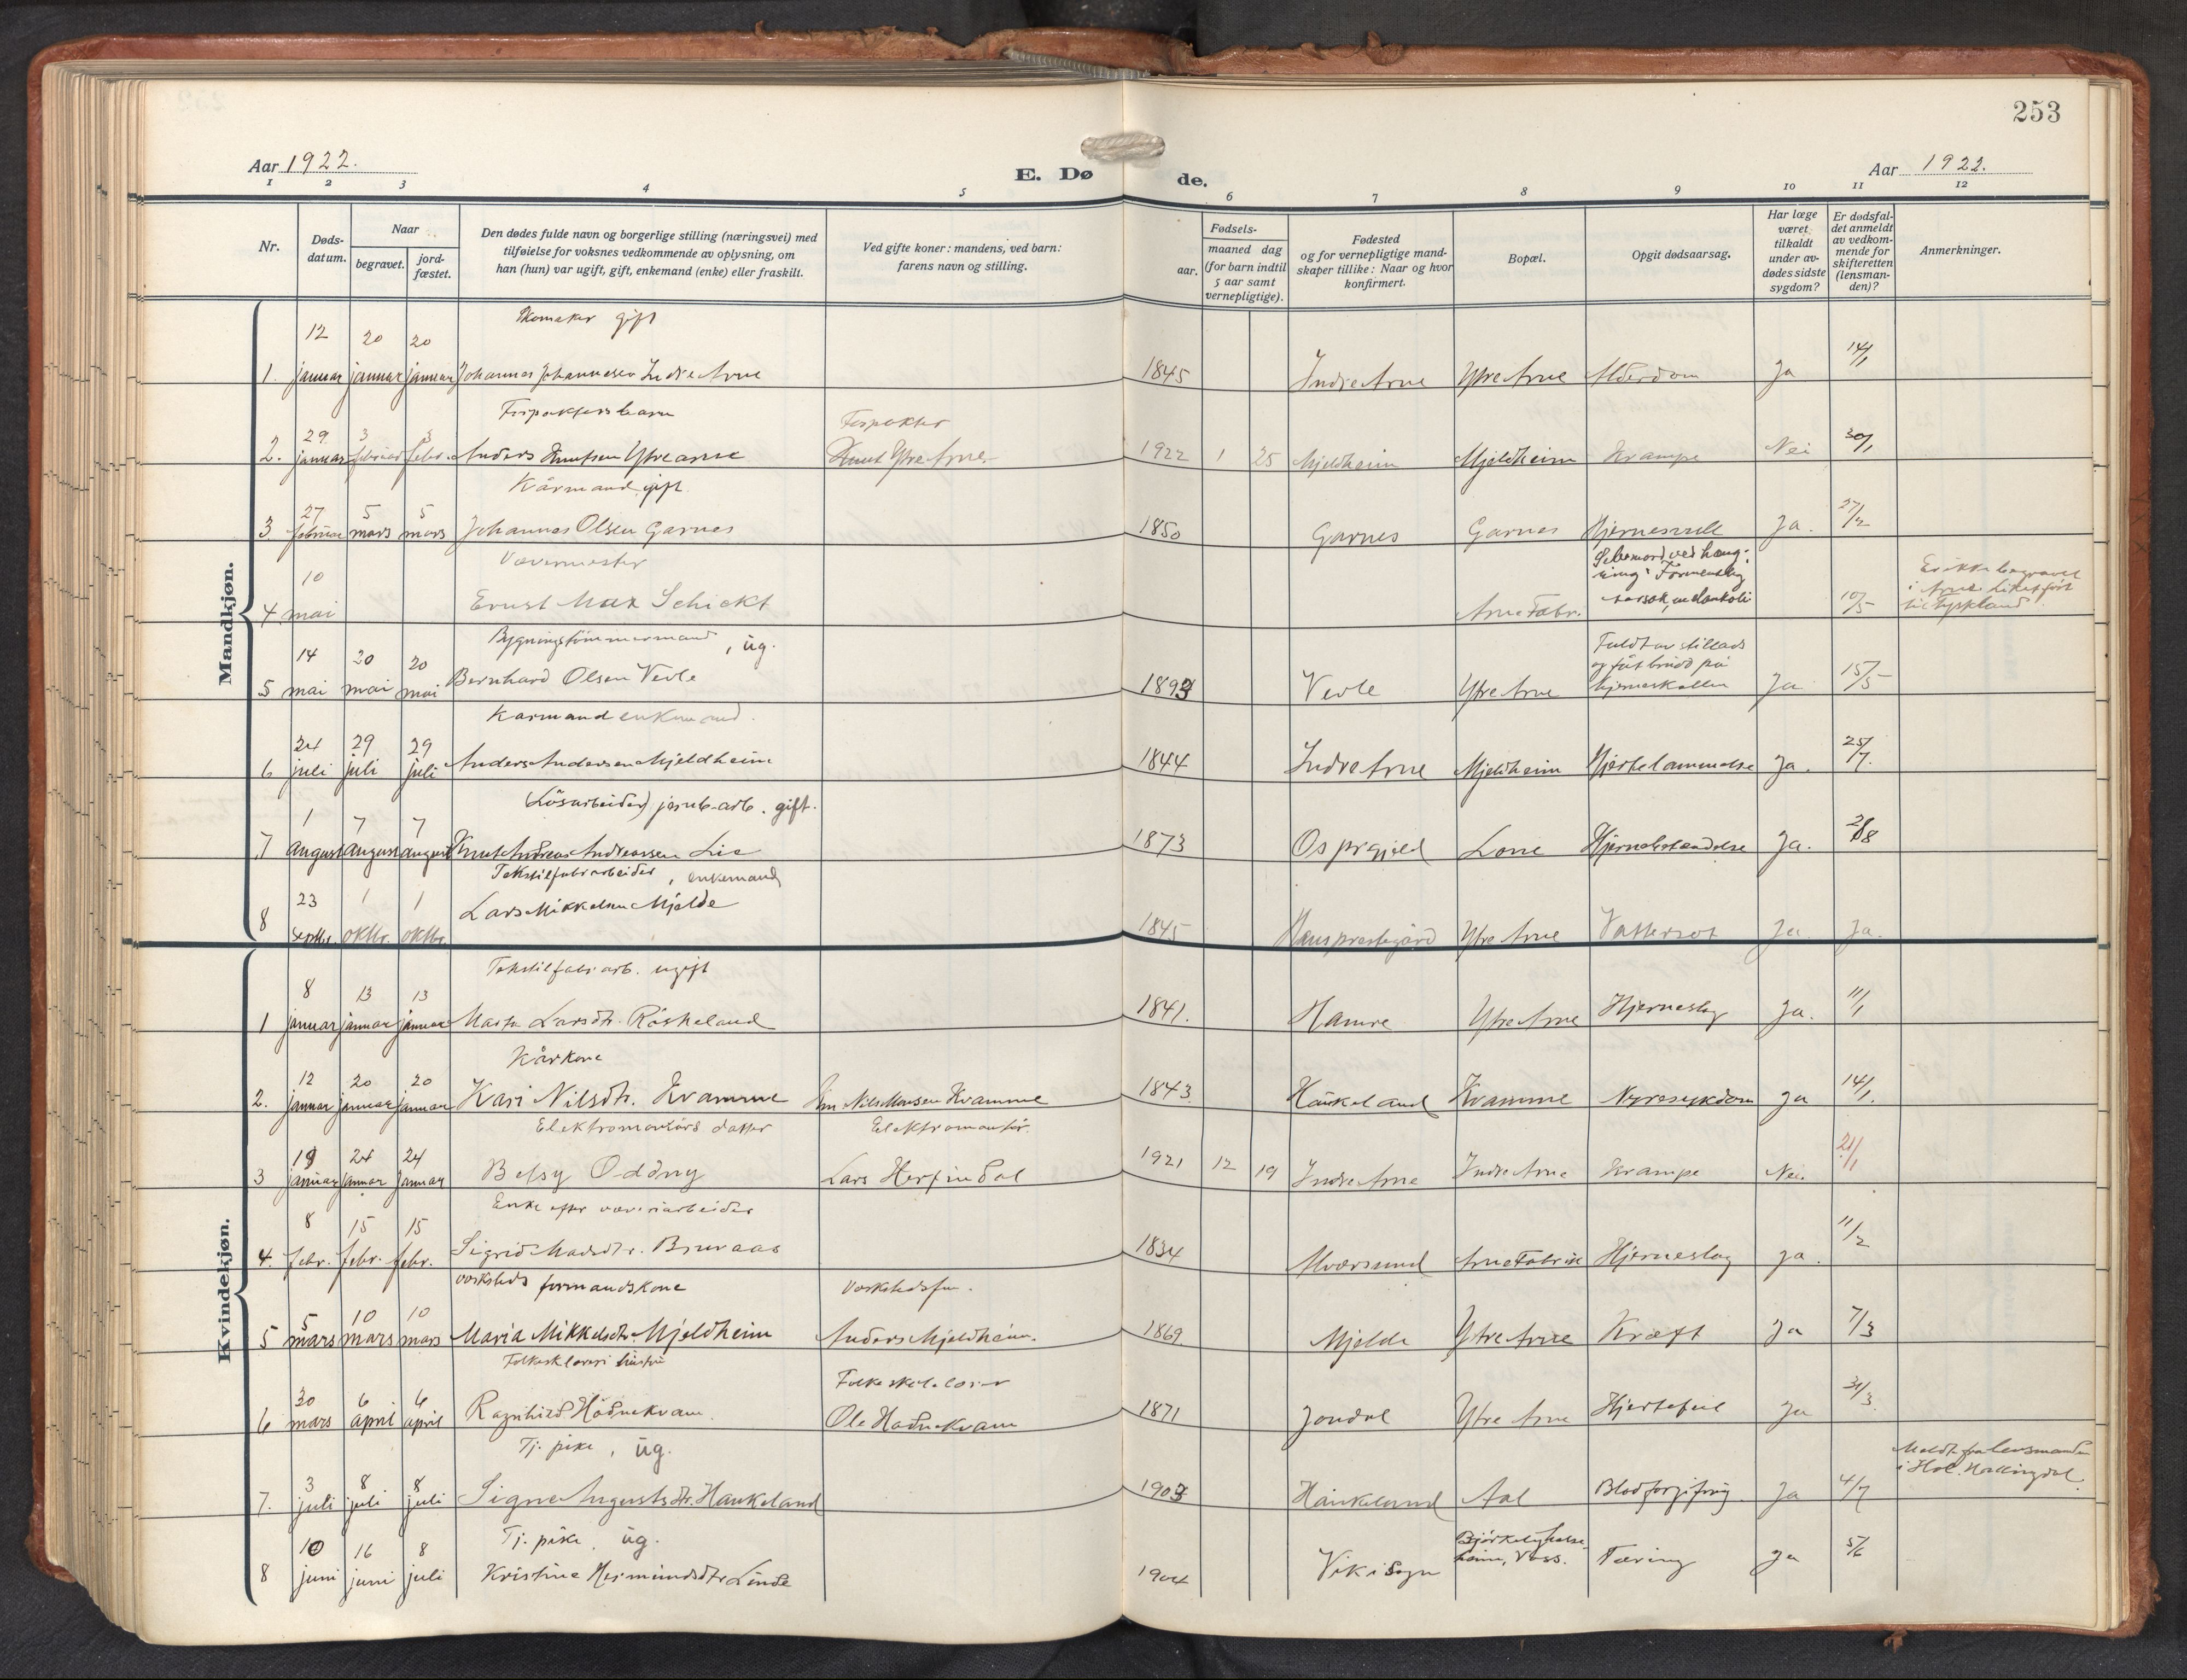 253
Aar 1922.
E. Døde.
Aar 1922.
1 2 3 4 5 6 7 8 9 10 11 12
Nr.
Døds-
datum.
Naar
begravet.
jord-
fæstet.
Den dødes fulde navn og borgerlige stilling (næringsvei) med
tilføielse for voksnes vedkommende av oplysning, om
han (hun) var ugift, gift, enkemand (enke) eller fraskilt.
Ved gifte koner: mandens, ved barn:
farens navn og stilling.
Fødsels-
aar.
maaned dag
(for barn indtil
5 aar samt
vernepligtige).
Fødested
og for vernepligtige mand-
skaper tillike: Naar og hvor
konfirmert.
Bopæl.
Opgit dødsaarsag.
Har læge
været
tilkaldt
under av-
dødes sidste
sygdom?
Er dødsfal-
det anmeldt
av vedkom-
mende for
skifteretten
(lensman-
den)?
Anmerkninger.
Mandkjøn.
Skomaker gift
12 20 20
1. januar januar januar Johannes Johannesen Indre Arne 1845 Indre Arne Ytre Arne Alderdom Ja 14/1
Forpakters barn
Forpakter
29 3 3
2. januar februar febr. Anders Knutsen Ytre Arne Knut Ytre Arne 1922 1 25 Mjeldheim Mjeldheim Krampe Nei 30/1
Kårmand, gift
27 5 5
3 februar mars mars Johannes Olsen Garnes 1850 Garnes Garnes Ja. 27/2
Vævermester
Selvmord ved hæng-
ning. Formentlig
10
4 mai Ernst Max Schickt Arne Fabr. aarsak, melankoli 10/5
Er ikke begravet
i Arne. Liket ført
til Tyskland
Bygningstømmermand, ug.
Faldt av stillads
og fåt brudd på
14 20 20
5 mai mai mai Bernhard Olsen Vevle 1893 Vevle Ytre Arne hjerneskallen Ja 15/5
Karmand enkemand.
24 29 29
6 juli juli juli Anders Andersen Mjeldheim 1844 Indre Arne Mjeldheim Hjertelammelse Ja. 25/7.
(Løsarbeider) jernb.-arb. gift.
1 7 7
7 august august august Knut Andreas Andreassen Lie 1873 Os prgjeld Lone Hjernebetændelse Ja. 2/8
Tekstilfabrarbeider, enkemand
23 1 1
8 septbr. oktbr. oktbr. Lars Mikkelsen Mjelde 1845 Haus prestegård Ytre Arne Vattersot Ja Ja.
Kvindekjøn.
Tekstilfabr. arb. ugift
8 13 13
1 januar januar januar Marta Larsdtr. Røskeland 1841. Hamre Ytre Arne Hjerneslag Ja. 11/1
Kårkone
12 20 20
2. januar januar januar Kari Nilsdtr. Kvamme Nils Monsen Kvamme 1843 Haukeland Kvamme Nyresykdom Ja 14/1.
Elektromontørs datter
Elektromontør.
19 24 24
3 januar januar januar Betsy Oddny Lars Herfindal 1921 12 19 Indre Arne Indre Arne Krampe Nei. 21/1
Enke efter væveriarbeider
8 15 15
4. febr. febr. febr. Sigrid Madsdtr. Bruraas 1834 Alværsund Arne Fabrik Hjerneslag Ja. 11/2
verksteds formandskone
Verkstedsfm.
5 10 10
5 mars mars mars Maria Mikkelsdtr. Mjeldheim Anders Mjeldheim. 1869. Mjelde Ytre Arne Kræft Ja 7/3
Folkesklæreri hustru
Folkeskolelærer
30 6 6
6 mars april april Ragnhild Hødnekvam Ole Hødnekvam 1871 Jondal Ytre Arne Hjertefeil Ja 31/3.
Tj. pike, ug.
3 8 8
7. juli juli juli Signe Augustsdtr. Haukeland 1903 Haukeland Aal Blodforgiftning Ja 4/7
Meldt fra lensmanden
i Hol. Hallingdal.
Tj. pike, ug.
10 16 8
8 juni juni juli Kristine Hermundsdtr Linde 1904 Vik i Sogn Bjørkely helse-
heim, Voss. Tæring Ja 5/6